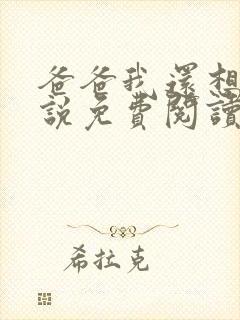 爸爸我還想
說免費閱讀
希拉克